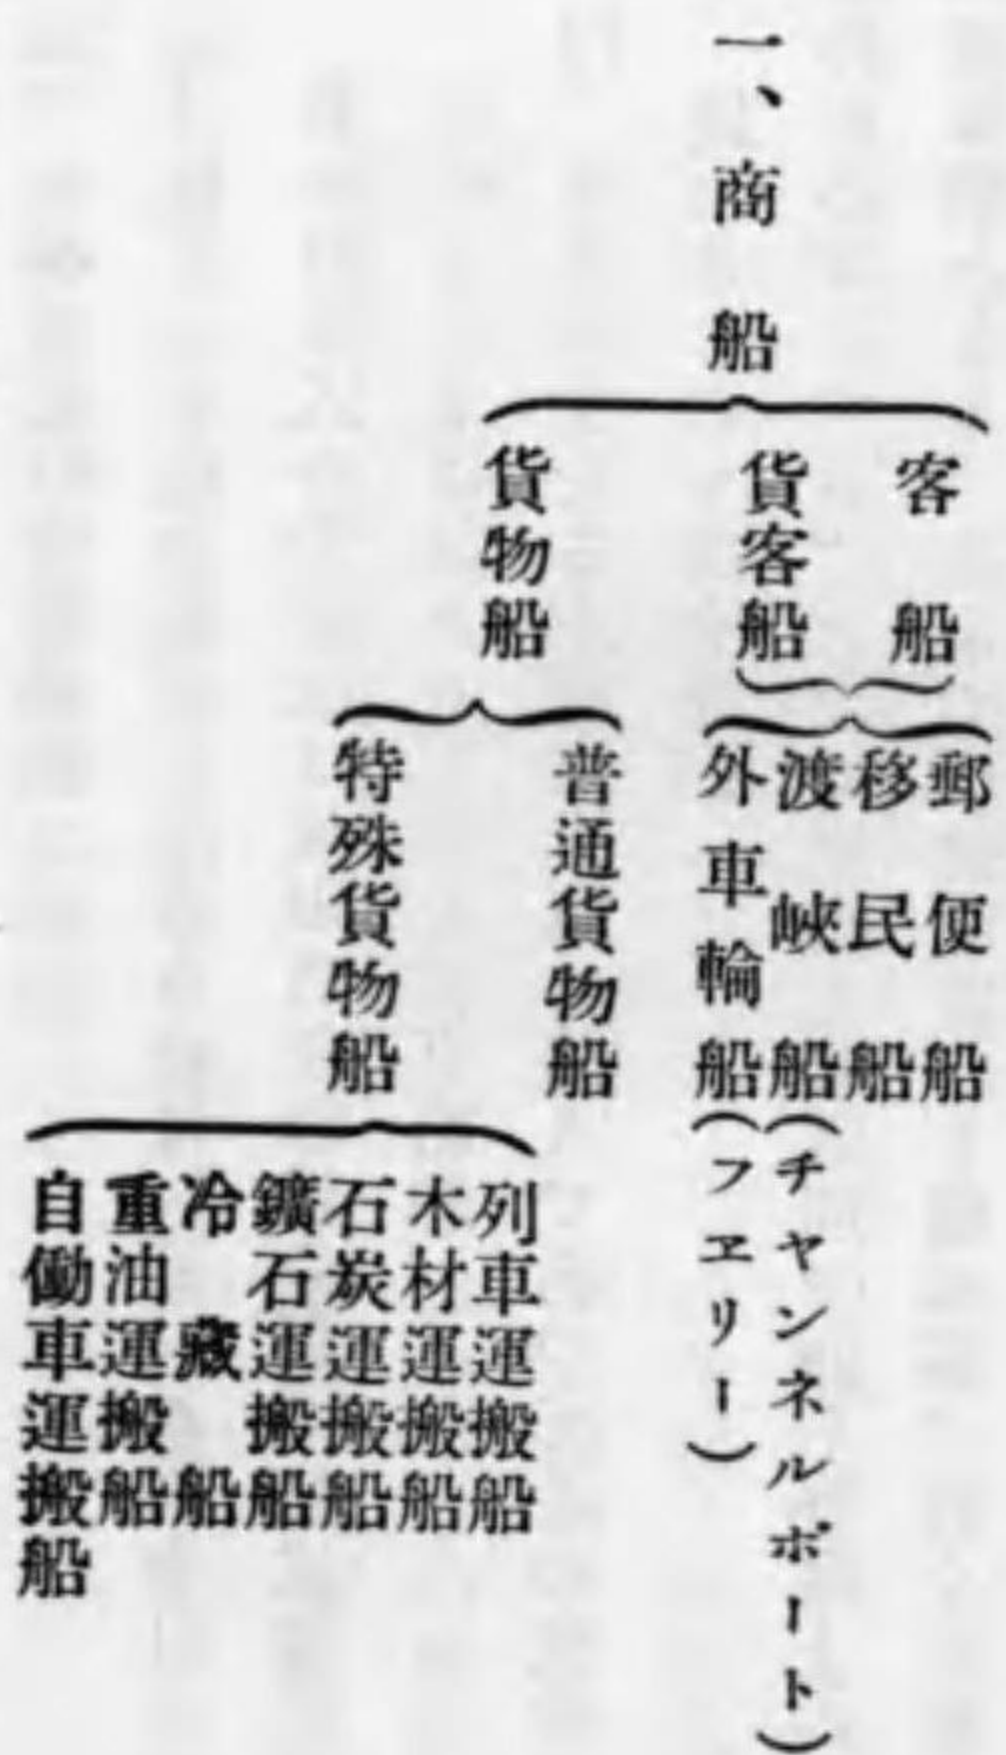 一、商船
客船
貨客船
郵便船
移民船
渡峽船（チャンネルボート）
外車輪船（フエリー）
貨物船
普通貨物船
特殊貨物船
列車運搬船
木材運搬船
石炭運搬船
鑛石運搬船
冷藏船
重油運搬船
自働車運搬船